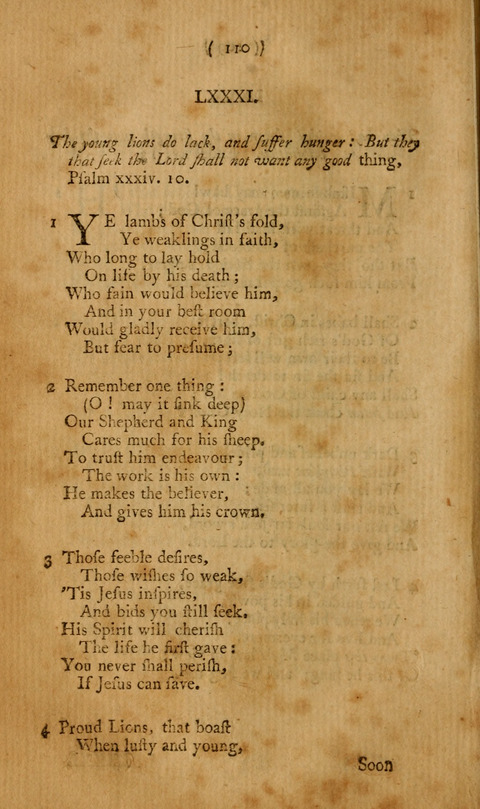 ( 110 )
LXXXI.
The young lions do lack, and ſuffer hunger: But they
that ſeek the Lord ſhall not want any good thing,
Pſalm xxxiv. 10.
1 YE lambs of Chriſt's fold,
Ye weaklings in faith,
Who long to lay hold
On life by his death;
Who fain would believe him,
And in your beſt room
Would gladly receive him,
But fear to preſume;
2 Remember one thing:
(O! may it ſink deep)
Our Shepherd and King
Cares much for his ſheep.
To truſt him endeavour;
The work is his own:
He makes the believer,
And gives him his crown.
3 Thoſe feeble deſires,
Thoſe wiſhes ſo weak,
'Tis Jeſus inſpires,
And bids you ſtill ſeek.
His Spirit will cheriſh
The life he firſt gave:
You never ſhall periſh,
If Jeſus can ſave.
4 Proud Lions, that boaſt
When luſty and young,
Soon